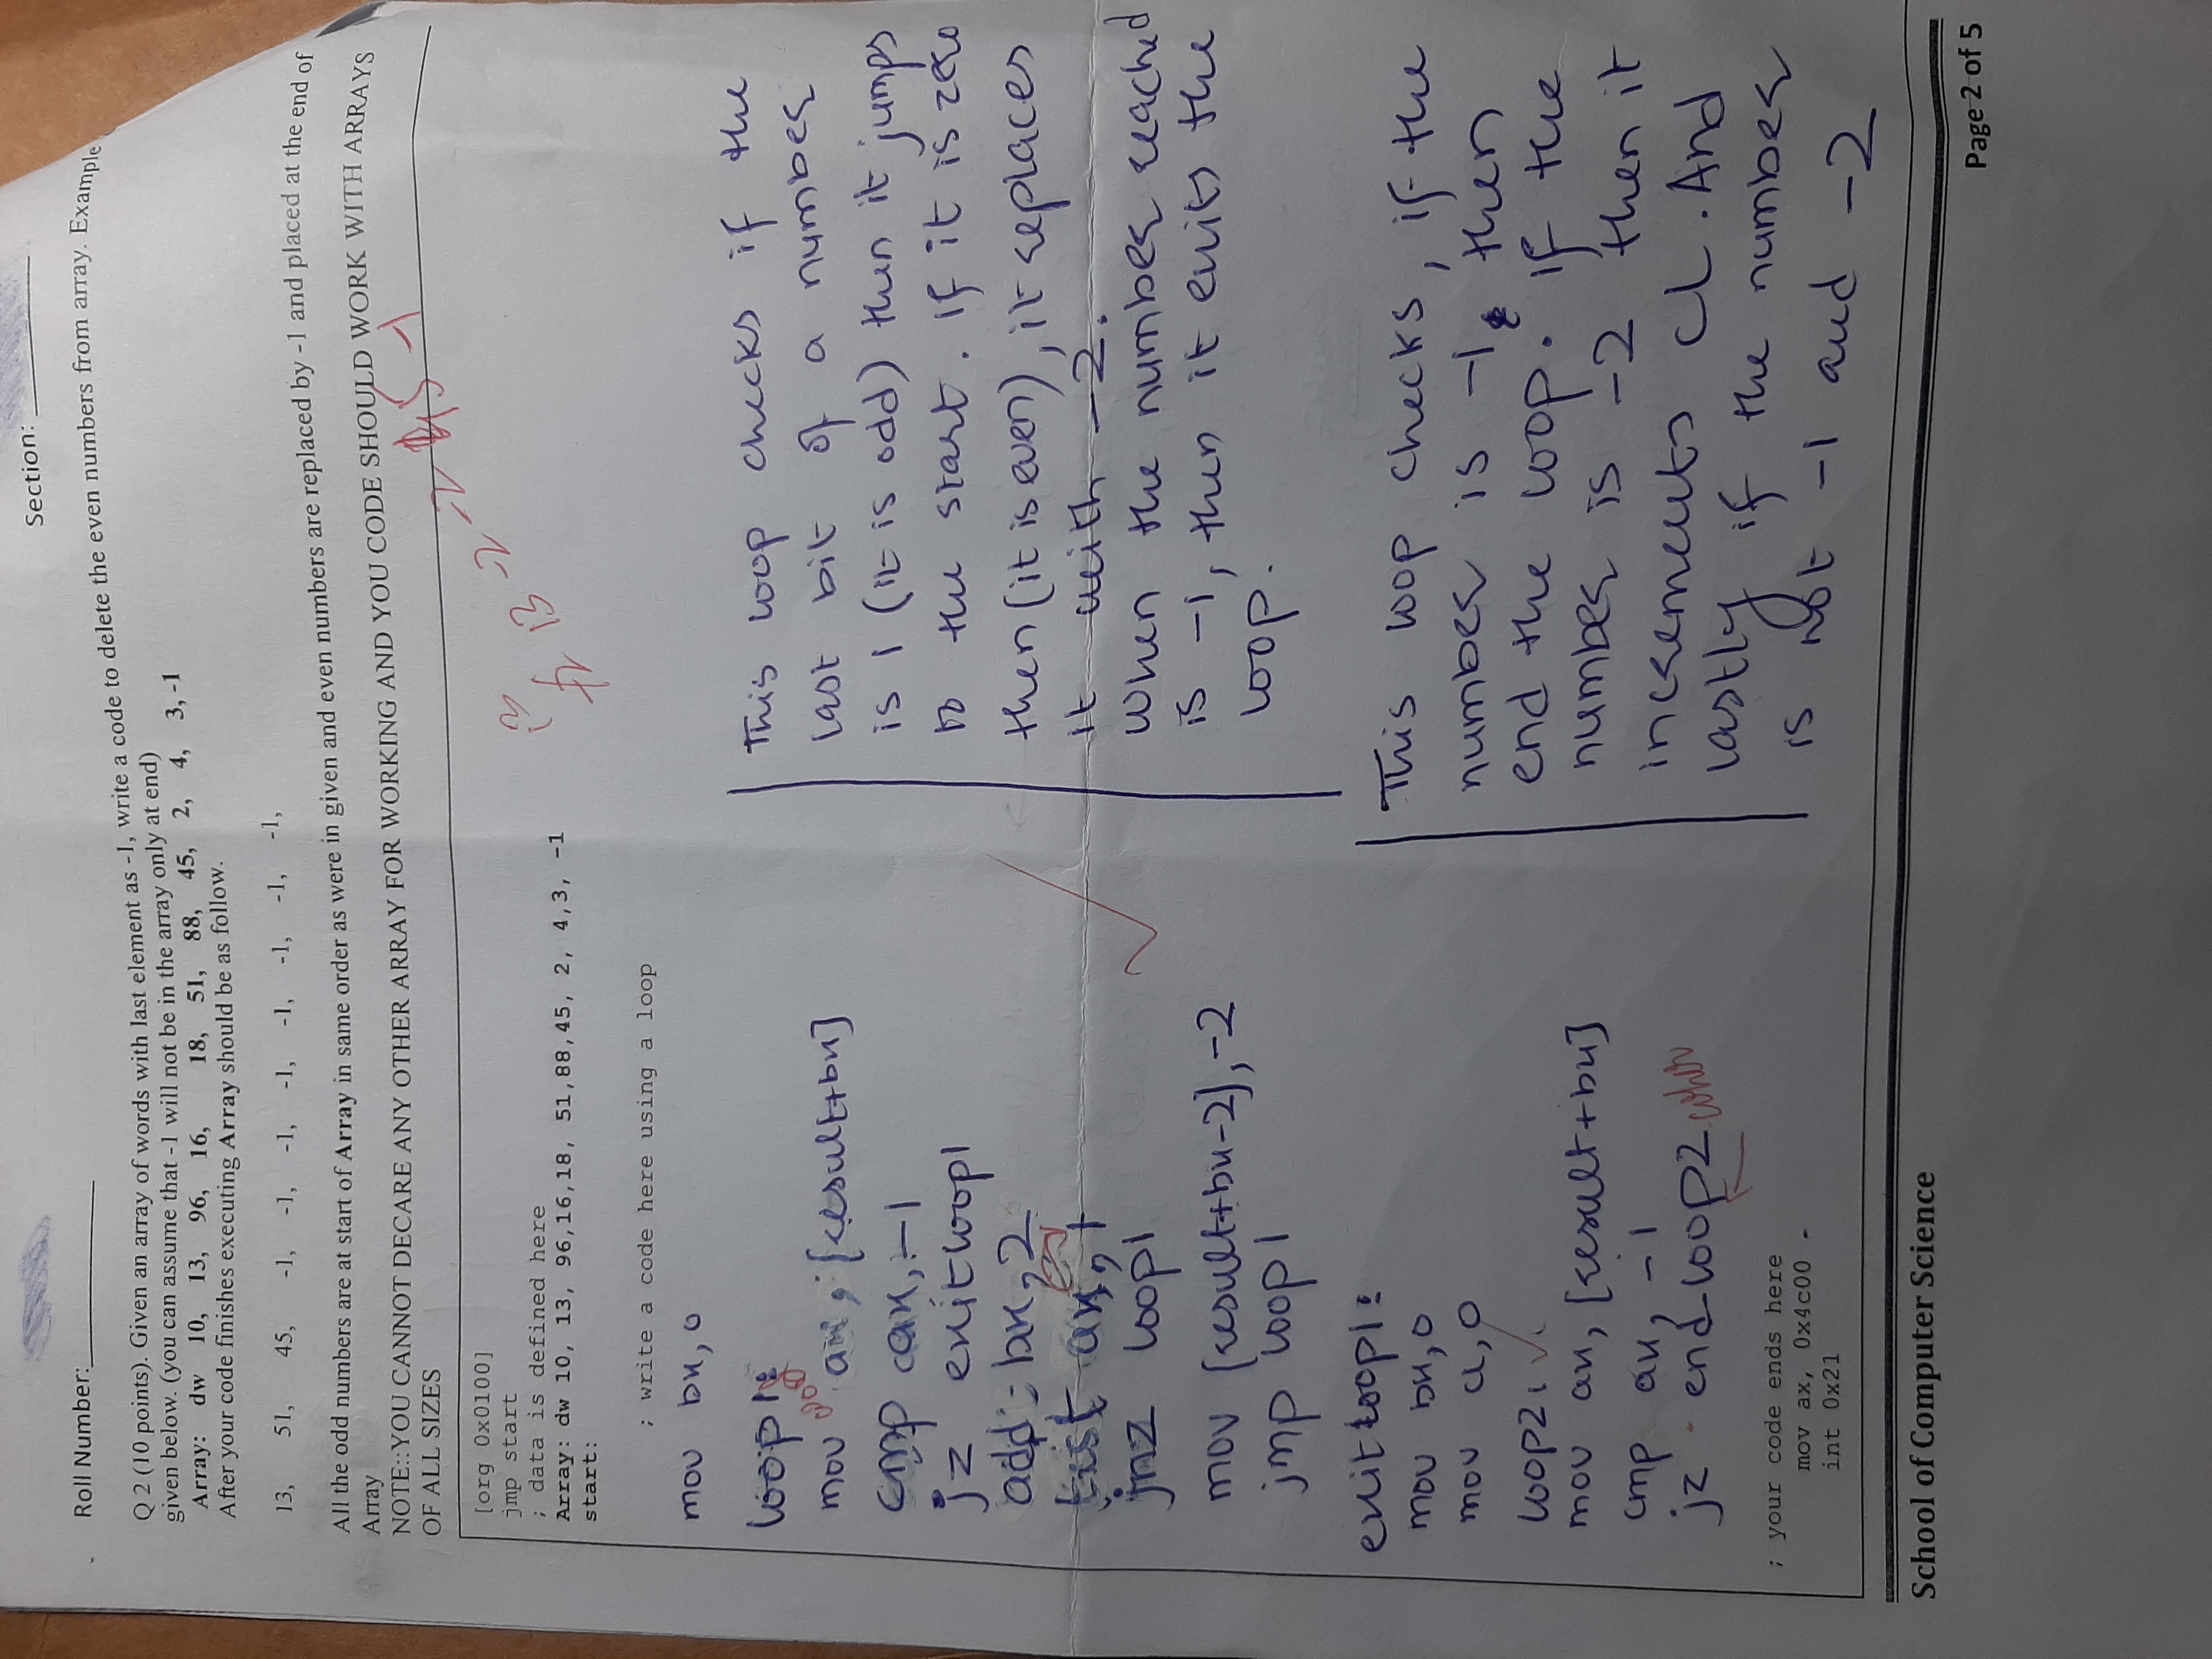 Section: ________
Roll Number:________
Q 2 (10 points). Given an array of words with last element as -1, write a code to delete the even numbers from array. Example
given below. (you can assume that -1 will not be in the array only at end)
Array: dw 10, 13, 96, 16, 18, 51, 88, 45, 2, 4, 3, -1
After your code finishes executing Array should be as follow.
13, 51, 45, -1, -1, -1, -1, -1, -1, -1, -1,
All the odd numbers are at start of Array in same order as were in given and even numbers are replaced by -1 and placed at the end of
Array
NOTE::YOU CANNOT DECARE ANY OTHER ARRAY FOR WORKING AND YOU CODE SHOULD WORK WITH ARRAYS
OF ALL SIZES
13 -2 -2 45 -1
13
[org 0x0100]
jmp start
; data is defined here
Array: dw 10, 13, 96,16,18, 51,88,45, 2, 4,3, -1
start:
; write a code here using a loop
mov bx, 0
loop1:
mov word ax, [result+bx]
cmp ax, -1
jz exitloop1
add bx, 2
test ax, 1
jnz loop1
mov [result+bx-2], -2
jmp loop1
This loop checks if the
last bit of a number
is 1 (it is odd) then it jumps
to the start. If it is zero
then (it is even), it replaces
it with -2.
When the number reached
is -1, then it exits the
loop.
exitloop1:
mov bx, 0
mov cl, 0
loop2:
mov ax, [result+bx]
cmp ax, -1
jz end-loop2
This loop checks, if the
number is -1, then
end the loop. If the
number is -2 then it
increments CL. And
lastly if the number
is not -1 and -2
; your code ends here
mov ax, 0x4c00
int 0x21
School of Computer Science
Page 2 of 5